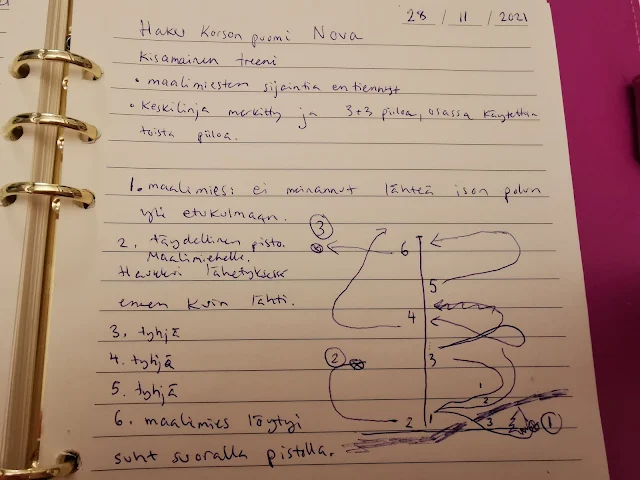 28 / 11 / 2021
Haku Korson puomi Nova
Kisamainen treeni
• maalimiesten sijaintia en tiennyt
• Keskilinja merkitty ja 3+3 piiloa, osassa käytettiin
toista piiloa.
1. maalimies: ei meinannut lähteä ison polun
yli etukulmaan.
2. täydellinen pisto.
Maalimiehelle.
Haukkui lähetyksessä
ennen kuin lähti.
3. tyhjä
4. tyhjä
5. tyhjä
6. maalimies löytyi
suht suoralla pistolla.
3
6
5
4
2
3
1
2
2
1
3
1